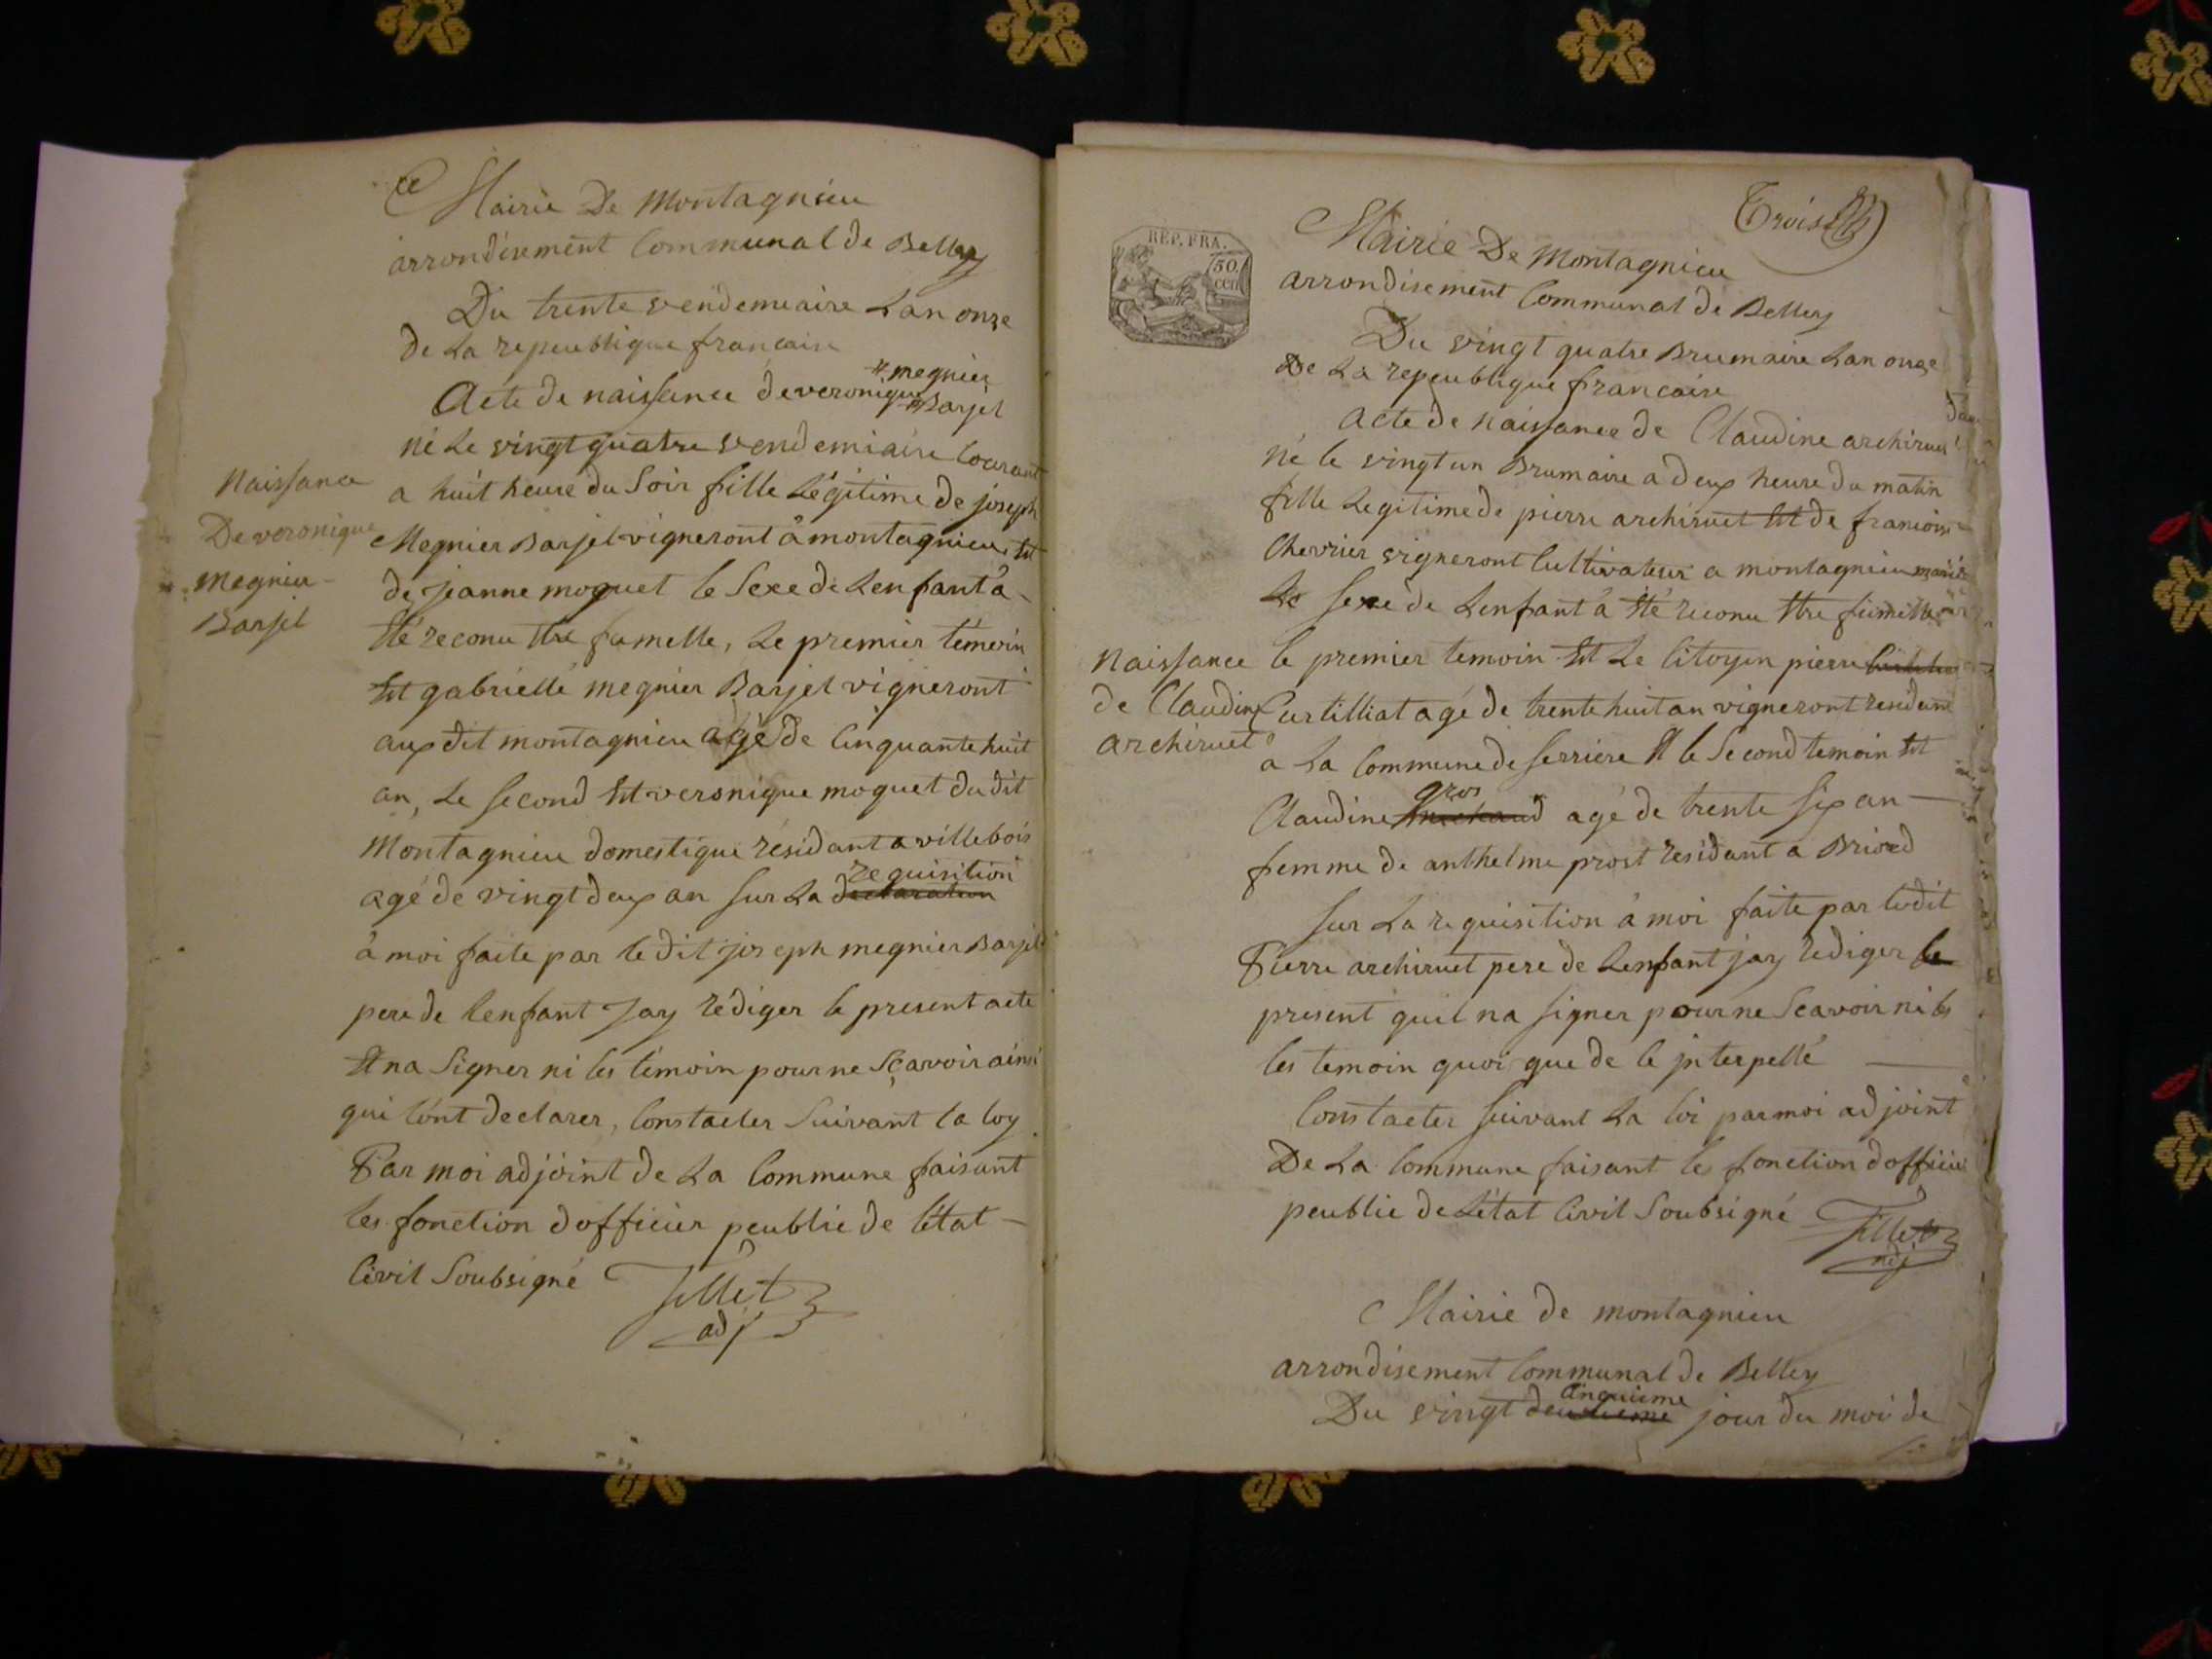 Mairie De Montagnieu
arrondisement Communal de Belley
Du trente vendemiaire Lan onze
de La repeublique francaise
# megnier
Acte de naissance de veronique # Barjel
né Le vingt quatre vendemiaire Courant
a huit heure du Soir fille Légitime de joseph
Megnier Barjel vigneront â montagnieu, Et
de jeanne moquet le Sexe de Lenfant â
Eté reconu Etre famelle, Le premier témoin
Est gabrielle megnier Barjel vigneront
aux dit montagnieu agé de Cinquante huit
an, Le Second Est veronique moquet du dit
Montagnieu domestique résidant a villebois
requisition
agé de vingt deux an Sur La declaration
â moi faite par le dit joseph megnier Barjel
pere de lenfant Jay rédiger le present acte
Et na Signer ni les témoin pour ne Sçavoir ainsi
qui lont declarer, Constacter Suivant la loy
Par moi adjoint de La Commune faisant
les fonction dofficier peublic de létat
Civil Soubsigné
Tillet
adj
Naissance
De veronique
megnieu
Barjel
Trois
REP. FRA.
50.
cen
Mairie De Montagnieu
arrondisement Communal de Belley
Du vingt quatre Brumaire Lan onze
De La repeublique francaise
Acte de Naissance de Claudine archiruet
né le vingt un Brumaire a deux heure du matin
fille Legitime de pierre archiruet Et de francoise
Chevrier vigneront Cultivateur a montagnieu mariés
Le Sexe de Lenfant â Eté reconu Etre fumelle
le premier temoin Est Le Citoyen pierre
Curtilliat agé de trente huit an vigneront residant
a La Commune de Serriere Et le Second temoin Est
gros
Claudine michaud agé de trente Six an
femme de anthelme prost residant a Briord
Sur La requisition â moi faite par ledit
Pierre archiruet pere de Lenfant jay rediger le
present quil na signer pour ne Scavoir ni les
les temoin quoi que de le jnterpellé
Constacter suivant La loi par moi adjoint
De La Commune faisant les fonction dofficier
peublic de Létat Civil Soubsigné
Tillet
adj
Naissance
de Claudine
archiruet
Mairie de montagnieu
arrondisement Communal de Belley
Cinquieme
Du vingt deuxieme jour du moi de